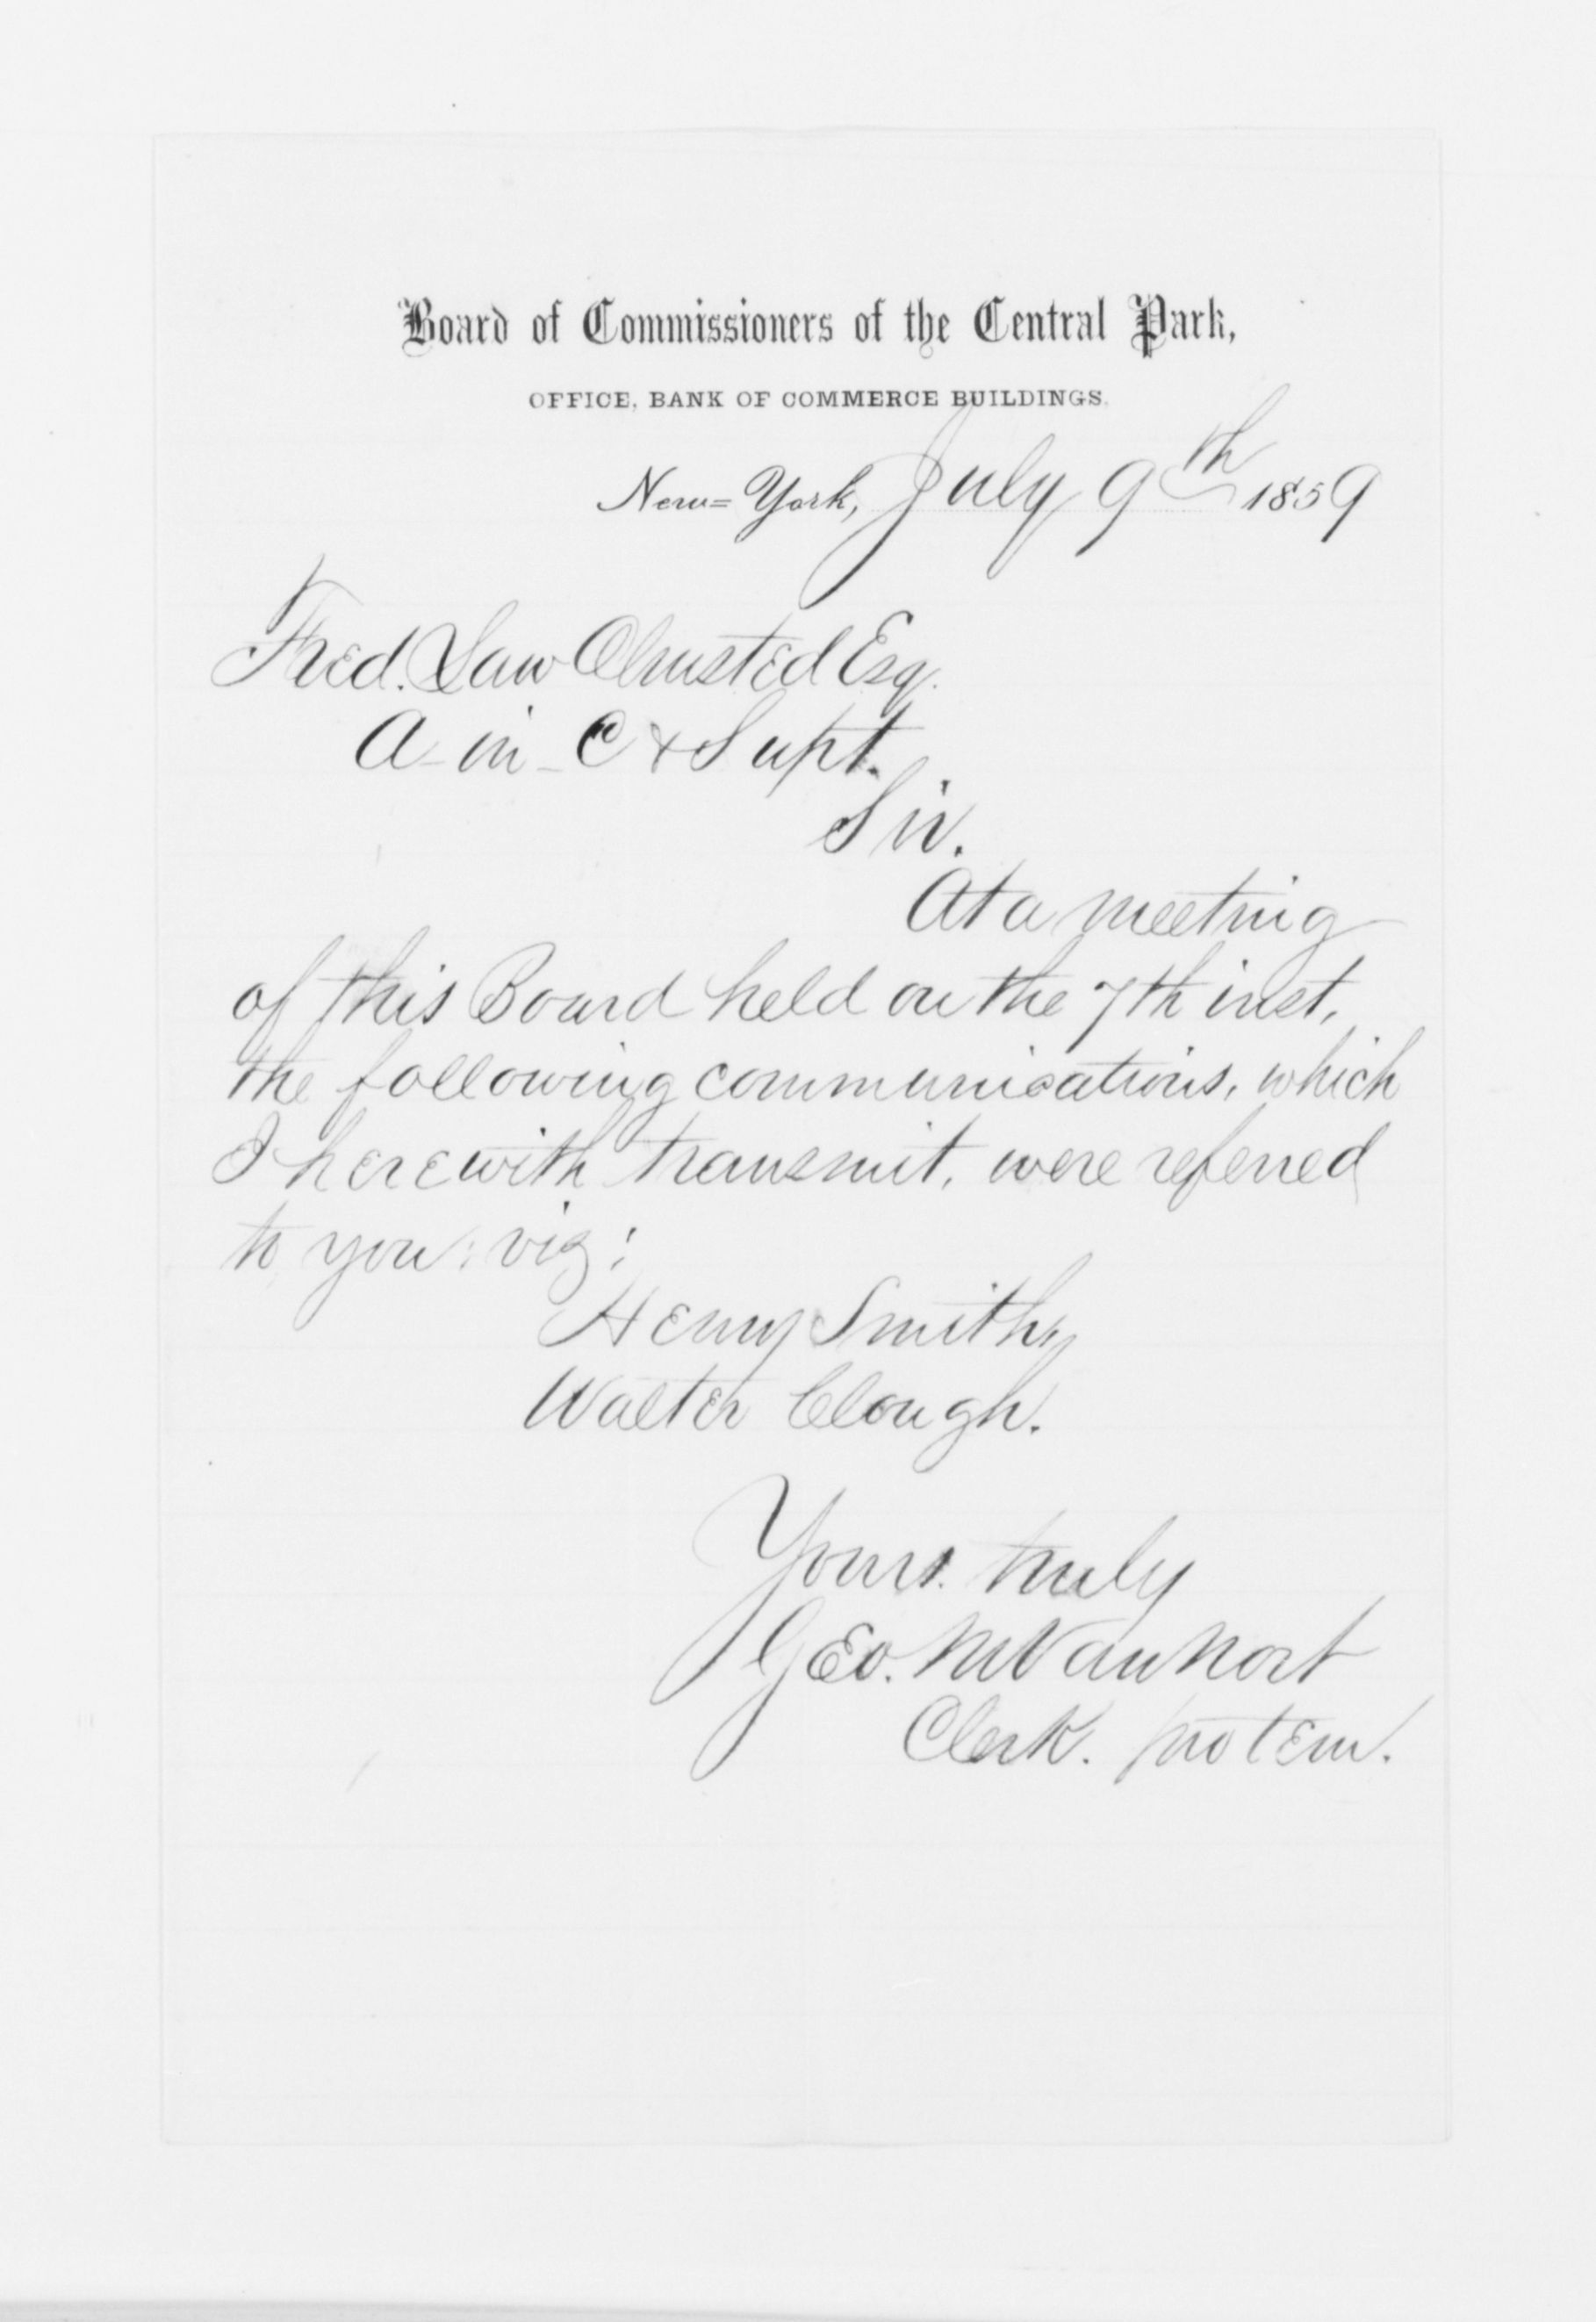 Board of Commissioners of the Central Park,
OFFICE, BANK OF COMMERCE BUILDINGS.
New=York, July 9th 1859
Fred. Law Olmsted Esq.
A-in-C & Supt.
Sir.
At a meeting
of this Board held on the 7th inst,
the following communications, which
I herewith transmit, were referred
to you: viz:
Henry Smith,
Walter Clough.
Yours. truly
Geo. M Van Nort
Clerk. pro tem.